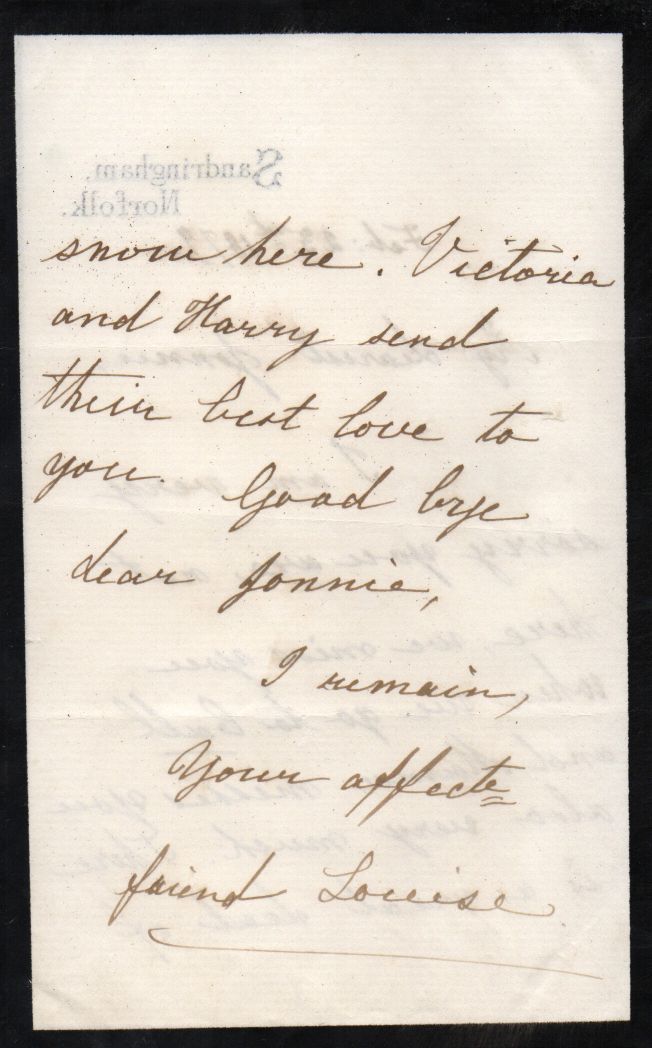 Sandringham,
Norfolk.
snow here. Victoria
and Harry send
their best love to
you. Good bye
dear Jonnie,
I remain,
Your affecte
friend Louise